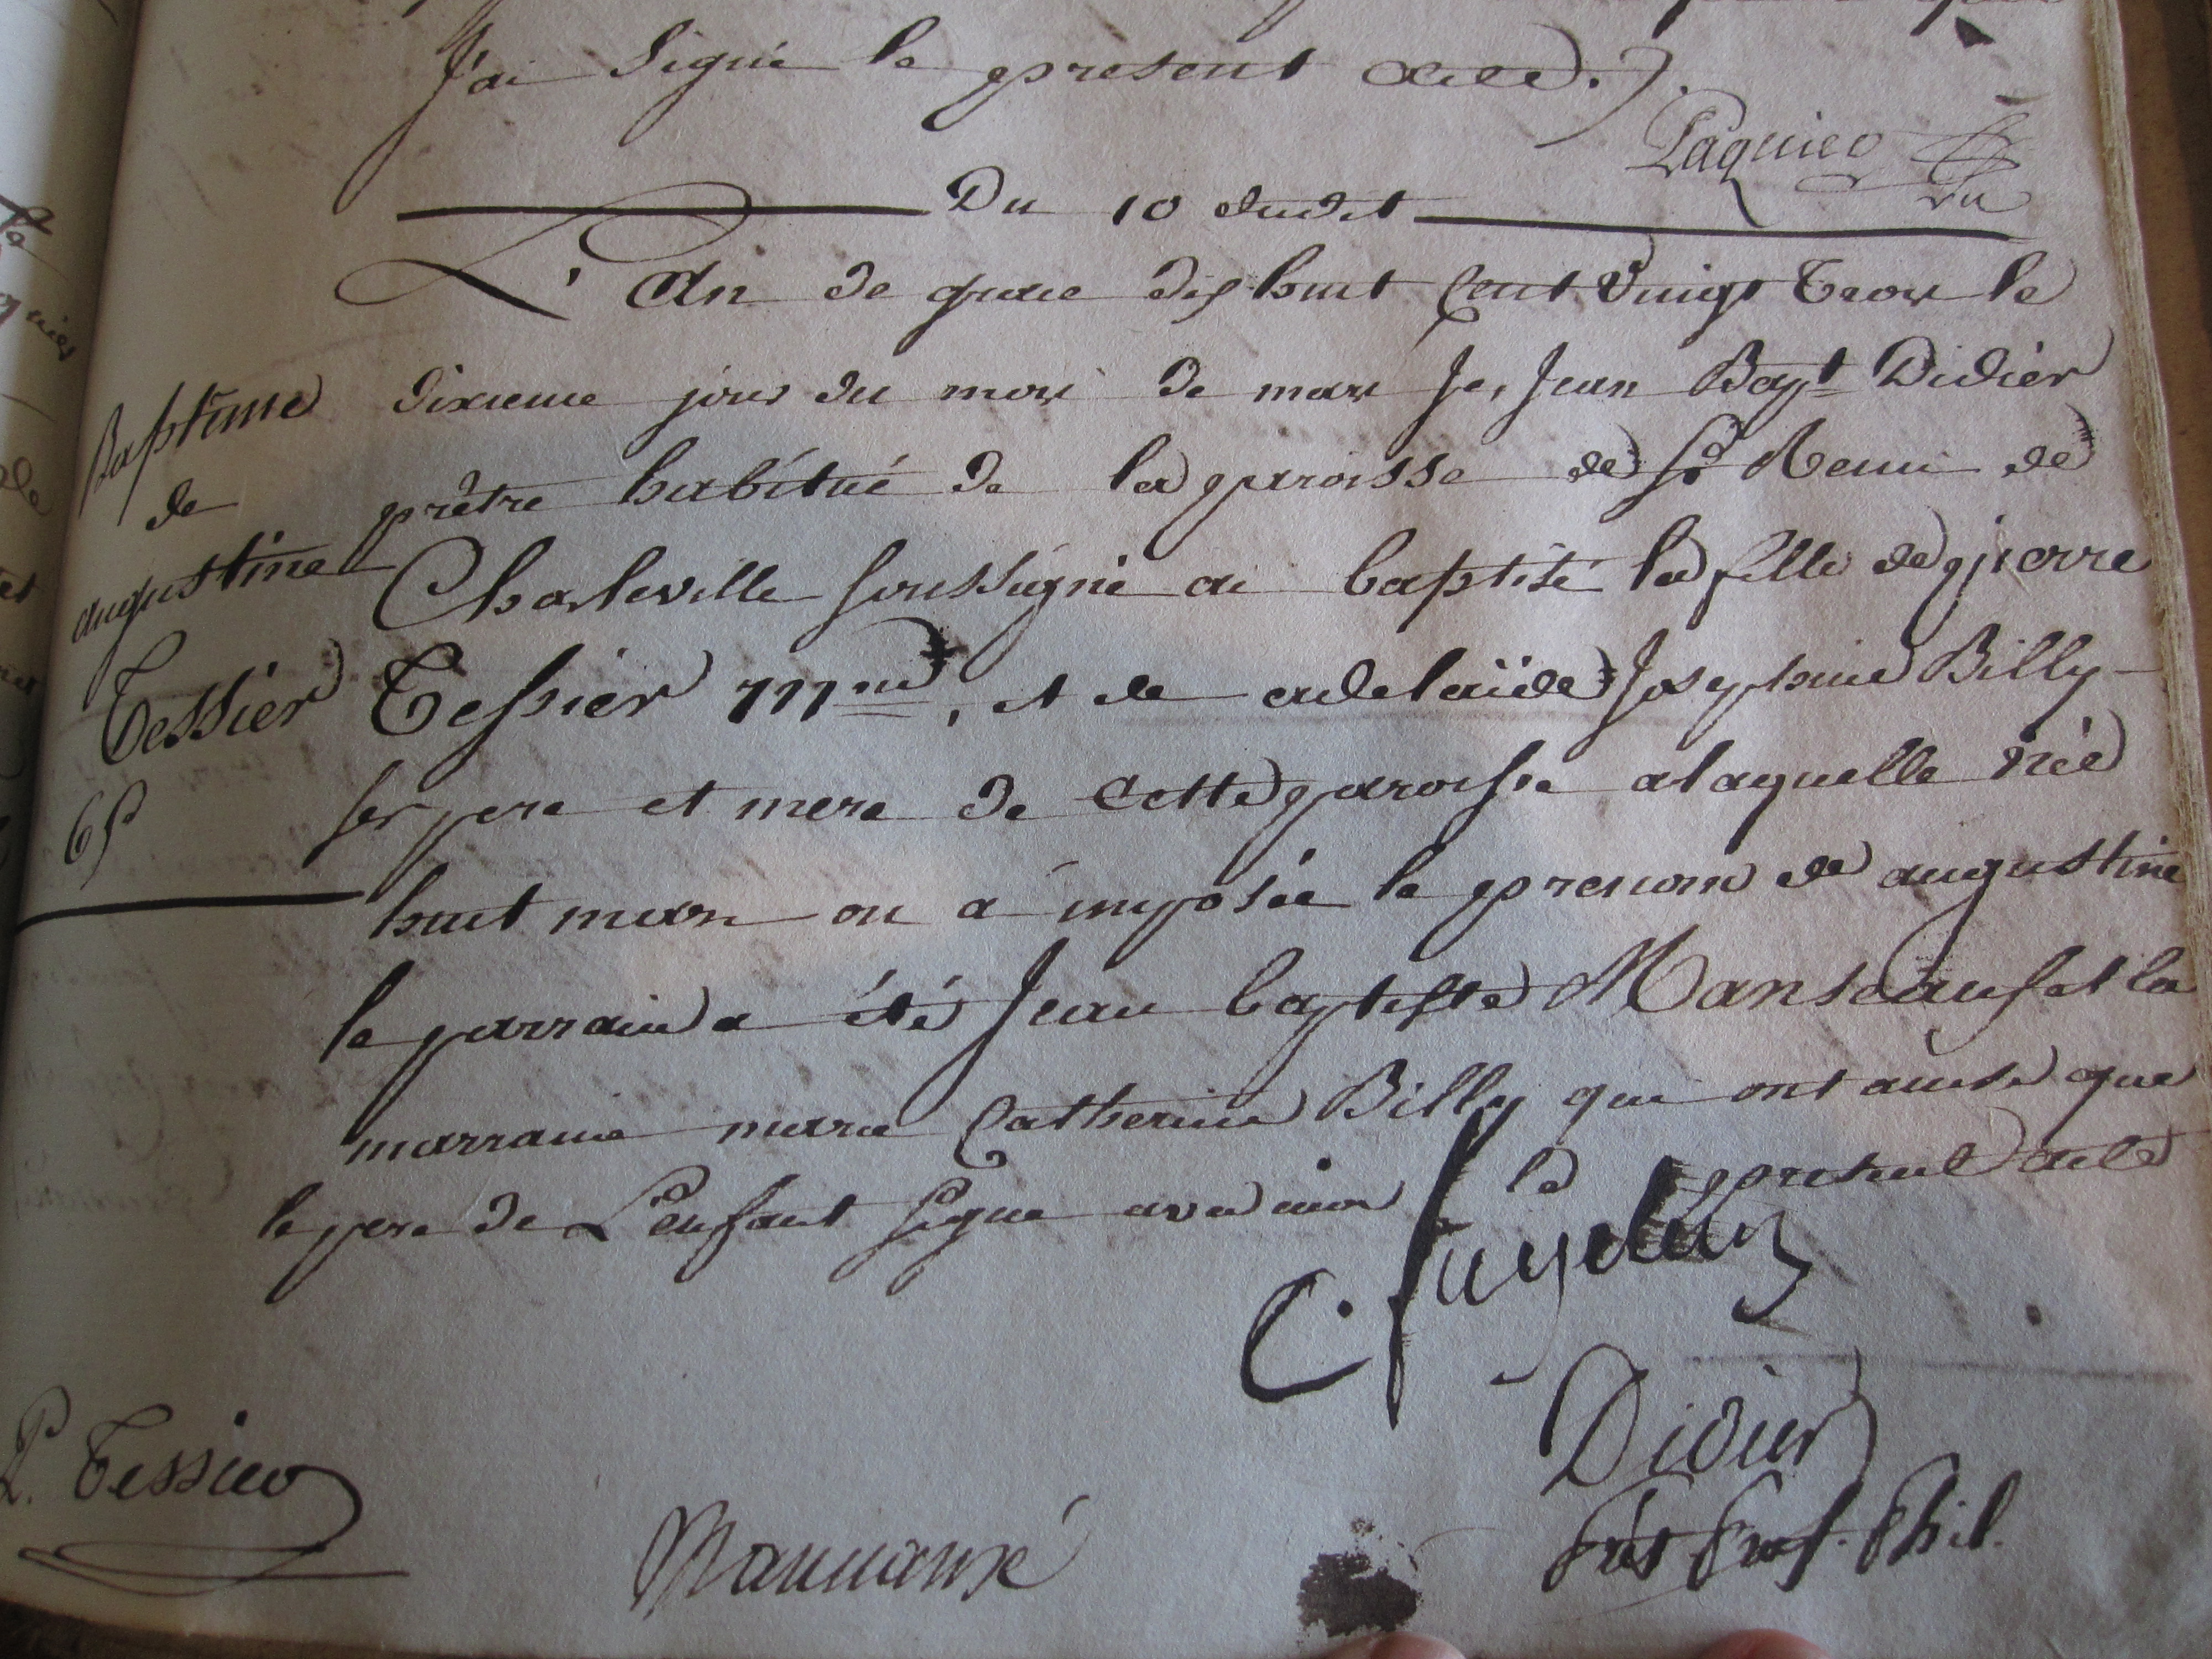 J'ai Signé le present acte.
Paquier
vic
Du 10 dudit
L'An de grace dix huit Cent Vingt Trois le
Baptême
dixieme jour du mois de mars Je, Jean Bapt. Didier
de
prêtre habitué de la paroisse de St Remi de
augustine
Charleville soussigné ai baptisé la fille de pierre
Tessier
Tessier Md, et de adelaïde Josephine Billy
65
ses pere et mere de cette paroisse a laquelle née
huit mars on a imposée le prenom de augustine
le parrain a été Jean baptiste et la
marraine marie Catherine Billy qui ont ainsi que
le pere de L'enfant Signé avec moi le present acte
C.
P. Tessier
Didier
Prêt Prof. Phil.